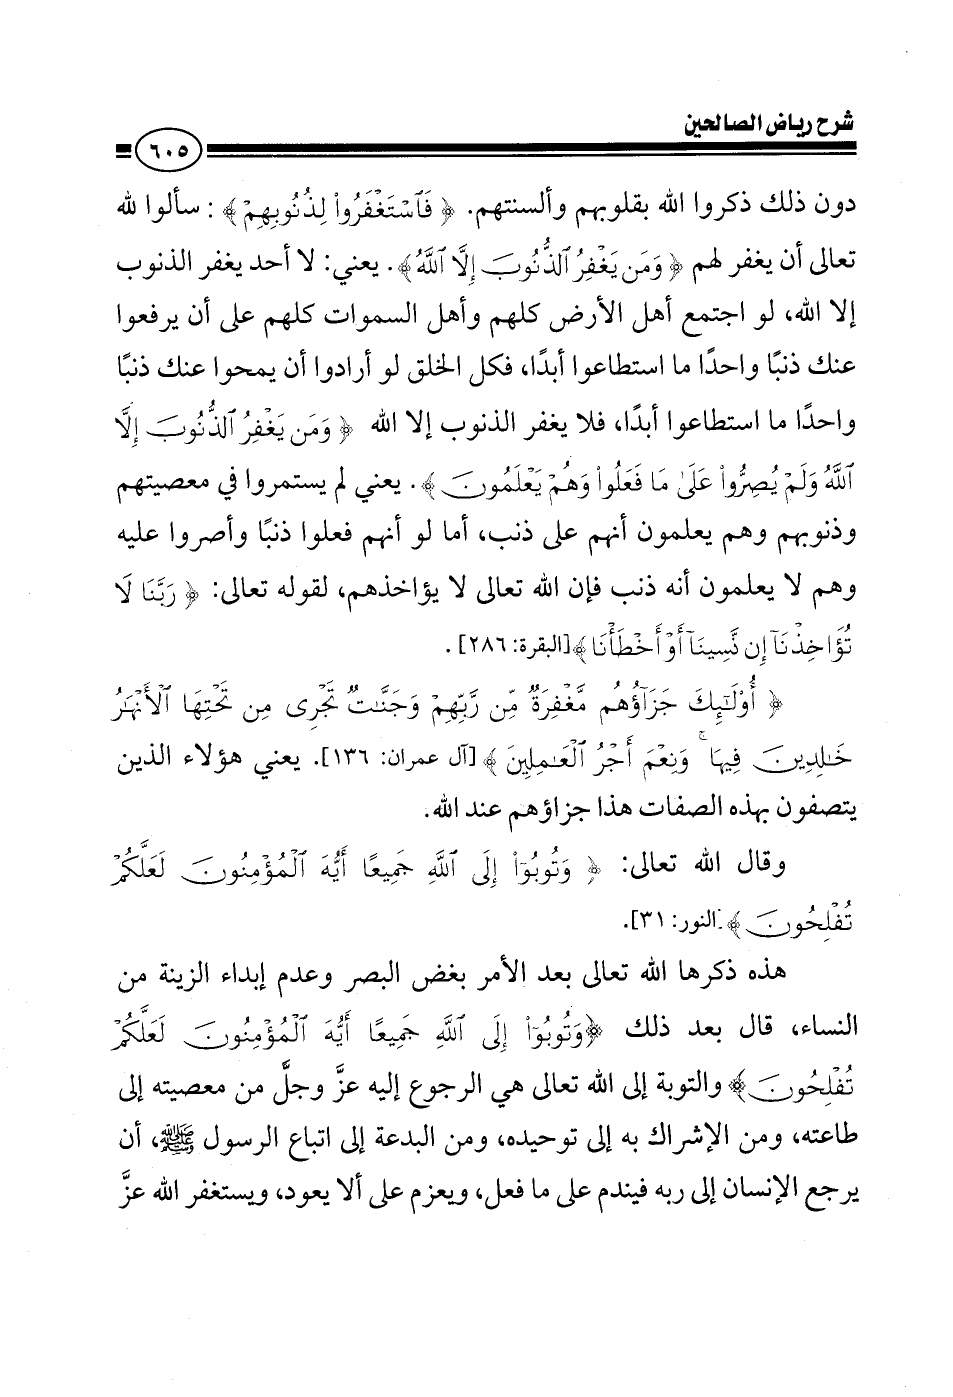 شرح رياض الصالحين
٦٠٥
دون ذلك ذكروا الله بقلوبهم وألسنتهم. ﴿ فَٱسْتَغْفَرُوا۟ لِذُنُوبِهِمْ ﴾ : سألوا لله
تعالى أن يغفر لهم ﴿ وَمَن يَغْفِرُ ٱلذُّنُوبَ إِلَّا ٱللَّهُ ﴾. يعني: لا أحد يغفر الذنوب
إلا الله، لو اجتمع أهل الأرض كلهم وأهل السموات كلهم على أن يرفعوا
عنك ذنبًا واحدًا ما استطاعوا أبدًا، فكل الخلق لو أرادوا أن يمحوا عنك ذنبًا
واحدًا ما استطاعوا أبدًا، فلا يغفر الذنوب إلا الله ﴿ وَمَن يَغْفِرُ ٱلذُّنُوبَ إِلَّا
ٱللَّهُ وَلَمْ يُصِرُّوا۟ عَلَىٰ مَا فَعَلُوا۟ وَهُمْ يَعْلَمُونَ ﴾. يعني لم يستمروا في معصيتهم
وذنوبهم وهم يعلمون أنهم على ذنب، أما لو أنهم فعلوا ذنبًا وأصروا عليه
وهم لا يعلمون أنه ذنب فإن الله تعالى لا يؤاخذهم، لقوله تعالى: ﴿ رَبَّنَا لَا
تُؤَاخِذْنَآ إِن نَّسِينَآ أَوْ أَخْطَأْنَا ﴾ [البقرة: ٢٨٦] .
﴿ أُو۟لَـٰٓئِكَ جَزَآؤُهُم مَّغْفِرَةٌ مِّن رَّبِّهِمْ وَجَنَّـٰتٌ تَجْرِى مِن تَحْتِهَا ٱلْأَنْهَـٰرُ
خَـٰلِدِينَ فِيهَا ۚ وَنِعْمَ أَجْرُ ٱلْعَـٰمِلِينَ ﴾ [آل عمران: ١٣٦]. يعني هؤلاء الذين
يتصفون بهذه الصفات هذا جزاؤهم عند الله.
وقال الله تعالى: ﴿ وَتُوبُوٓا۟ إِلَى ٱللَّهِ جَمِيعًا أَيُّهَ ٱلْمُؤْمِنُونَ لَعَلَّكُمْ
تُفْلِحُونَ ﴾ [النور: ٣١].
هذه ذكرها الله تعالى بعد الأمر بغض البصر وعدم إبداء الزينة من
النساء، قال بعد ذلك ﴿وَتُوبُوٓا۟ إِلَى ٱللَّهِ جَمِيعًا أَيُّهَ ٱلْمُؤْمِنُونَ لَعَلَّكُمْ
تُفْلِحُونَ ﴾ والتوبة إلى الله تعالى هي الرجوع إليه عزَّ وجلَّ من معصيته إلى
طاعته، ومن الإشراك به إلى توحيده، ومن البدعة إلى اتباع الرسول ﷺ، أن
يرجع الإنسان إلى ربه فيندم على ما فعل، ويعزم على ألا يعود، ويستغفر الله عزَّ